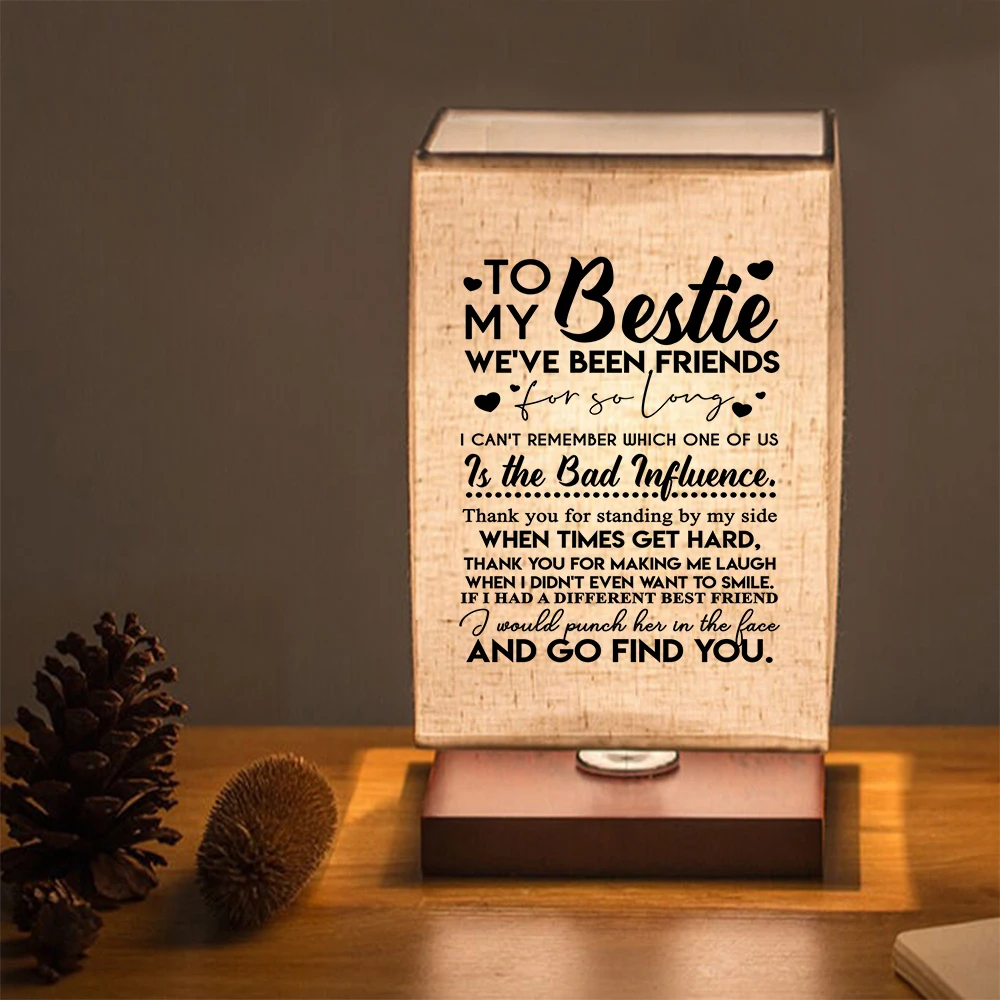 TO MY Bestie
WE'VE BEEN FRIENDS
for so long
I CAN'T REMEMBER WHICH ONE OF US
Is the Bad Influence.
Thank you for standing by my side
WHEN TIMES GET HARD,
THANK YOU FOR MAKING ME LAUGH
WHEN I DIDN'T EVEN WANT TO SMILE.
IF I HAD A DIFFERENT BEST FRIEND
I would punch her in the face
AND GO FIND YOU.